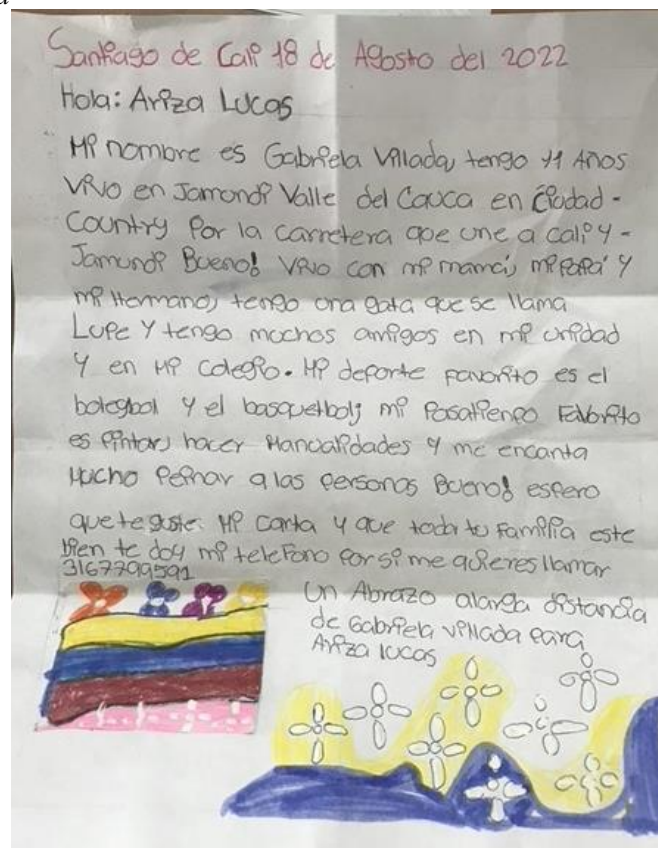 Santiago de Cali 18 de Agosto del 2022
Hola: Ariza Lucas
Mi nombre es Gabriela Villada, tengo 11 Años
Vivo en Jamondi Valle del Cauca en Ciudad-
Country Por la carretera que une a cali y-
Jamundi Bueno! Vivo con mi mamá, mi Papá y
mi Hermano, tengo una gata que se llama
Lupe y tengo muchos amigos en mi unidad
y en Mi colegio. Mi deporte favorito es el
bolegbol y el basquetbol; mi Pasatienpo Faborito
es Pintar, hacer Manualidades y me encanta
Mucho Peinar a las personas Bueno! espero
que te guste Mi Carta y que toda tu Familia este
bien te doy mi teleFono por si me quieres llamar
3167799591
Un Abrazo alarga distancia
de Gabriela Villada para
Ariza lucas